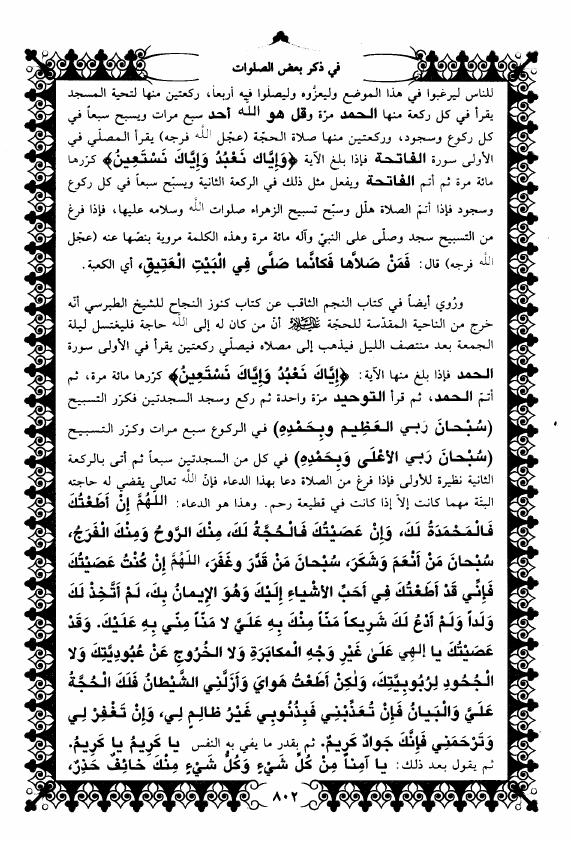 في ذكر بعض الصلوات
للناس ليرغبوا في هذا الموضع وليعزّوه وليصلّوا فيه أربعاً، ركعتين منها لتحية المسجد
يقرأ في كل ركعة منها الحمد مرّة وقل هو الله أحد سبع مرات ويسبح سبعاً في
كل ركوع وسجود، وركعتين منها صلاة الحجّة (عجّل الله فرجه) يقرأ المصلّي في
الأولى سورة الفاتحة فإذا بلغ الآية ﴿وَإِيَّاكَ نَعْبُدُ وَإِيَّاكَ نَسْتَعِينُ﴾ كرّرها
مائة مرة ثم أتم الفاتحة ويفعل مثل ذلك في الركعة الثانية ويسبّح سبعاً في كل ركوع
وسجود فإذا أتمّ الصلاة هلّل وسبّح تسبيح الزهراء صلوات الله وسلامه عليها، فإذا فرغ
من التسبيح سجد وصلّى على النبيّ وآله مائة مرة وهذه الكلمة مروية بنصّها عنه (عجّل
الله فرجه) قال: فَمَنْ صَلاَّها فَكَأنَّما صَلَّى فِي الْبَيْتِ الْعَتِيقِ، أي الكعبة.
ورُوي أيضاً في كتاب النجم الثاقب عن كتاب كنوز النجاح للشيخ الطبرسي أنّه
خرج من الناحية المقدّسة للحجّة عليه السلام أنّ من كان له إلى الله حاجة فليغتسل ليلة
الجمعة بعد منتصف الليل فيذهب إلى مصلاه فيصلّي ركعتين يقرأ في الأولى سورة
الحمد فإذا بلغ منها الآية: ﴿إِيَّاكَ نَعْبُدُ وَإِيَّاكَ نَسْتَعِينُ﴾ كرّرها مائة مرة، ثم
أتمّ الحمد، ثم قرأ التوحيد مرّة واحدة ثم ركع وسجد السجدتين فكرّر التسبيح
(سُبْحانَ رَبي العَظِيم وبِحَمْدِهِ) في الركوع سبع مرات وكرّر التسبيح
(سُبْحانَ رَبِي الأعْلَى وَبِحَمْدِهِ) في كل من السجدتين سبعاً ثم أتى بالركعة
الثانية نظيرة للأولى فإذا فرغ من الصلاة دعا بهذا الدعاء فإنّ الله تعالى يقضي له حاجته
البتّة مهما كانت إلاّ إذا كانت في قطيعة رحم. وهذا هو الدعاء: اللَّهُمَّ إِنْ أطَعْتُكَ
فَالمَحْمَدَةُ لَكَ، وَإِنْ عَصَيْتُكَ فَالْحُجَّةُ لَكَ، مِنْكَ الرَّوحُ وَمِنْكَ الْفَرَجُ،
سُبْحانَ مَنْ أَنْعَمَ وَشَكَرَ، سُبْحانَ مَنْ قَدَّرَ وَغَفَرَ، اللَّهُمَّ إِنْ كُنْتُ عَصَيْتُكَ
فَإِنِّي قَدْ أَطَعْتُكَ فِي أَحَبِّ الأشْياءِ إِلَيْكَ وَهُوَ الإيمانُ بِكَ، لَمْ أتَّخِذْ لَكَ
وَلَداً وَلَمْ أدْعُ لَكَ شَرِيكاً مَنّاً مِنْكَ بِهِ عَلَيَّ لا مَنّاً مِنِّي بِهِ عَلَيْكَ. وَقَدْ
عَصَيْتُكَ يا إلهِي عَلىٰ غَيْرِ وَجْهِ الْمكابَرَةِ وَلا الْخُروجِ عَنْ عُبُودِيَّتِكَ وَلا
الْجُحُودِ لِرُبُوبِيَّتِكَ، وَلٰكِنْ أطَعْتُ هَوايَ وَأَزَلَّنِي الشَّيْطانُ فَلَكَ الْحُجَّةُ
عَلَيَّ وَالْبَيانُ فَإِنْ تُعَذِّبْنِي فَبِذُنُوبِي غَيْرُ ظالِمٍ لِي، وَإِنْ تَغْفِرْ لِي
وَتَرْحَمْنِي فَإِنَّكَ جَوادٌ كَرِيمٌ. ثم يقول بقدر ما يفي به النفس يا كَرِيمُ يا كَرِيمُ.
ثم يقول بعد ذلك: يا آمِناً مِنْ كُلِّ شَيْءٍ وَكُلُّ شَيْءٍ مِنْكَ خائِفٌ حَذِرٌ،
٨٠٢